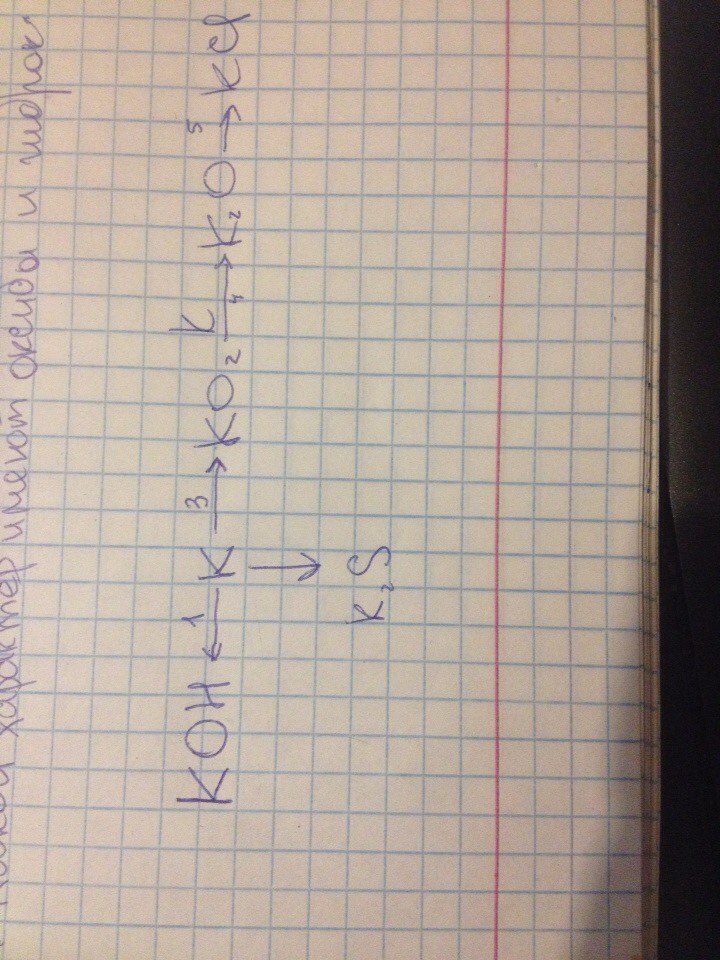 характер имеют оксиды и гидрок
KOH ←1 K 3→ KO₂ K→4 K₂O 5→ KCl
↓
K₂S